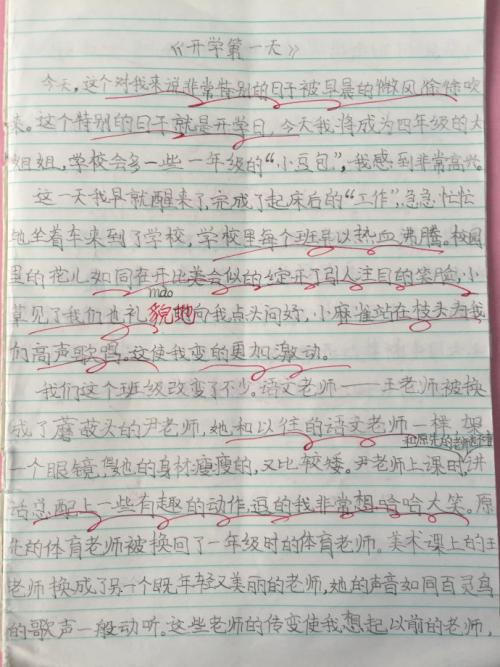 《开学第一天》
今天，这个对我来说非常特别的日子被早晨的微风徐徐吹
来。这个特别的日子就是开学日，今天我将成为四年级的大
姐姐，学校会多一些一年级的“小豆包”，我感到非常高兴。
这一天我早就醒来了，完成了起床后的“工作”，急急忙忙
地坐着车来到了学校，学校里每个班早以热血沸腾。校园
里的花儿如同在开比美会似的绽开了引人注目的笑脸，小
mào
草见了我们也礼貌地向我点头问好，小麻雀站在枝头为我
们高声歌唱。这使我变的更加激动。
我们这个班级改变了不少。语文老师——王老师被换
成了蘑菇头的尹老师，她和以往的语文老师一样架
和原先的老师
一个眼镜，但她的身材瘦瘦的，又比较矮。尹老师上课时，讲
话总配上一些有趣的动作，逗的我非常想哈哈大笑。原
先的体育老师被换回了一年级时的体育老师。美术课上的王
老师换成了另一个既年轻又美丽的老师，她的声音如同百灵鸟
的歌声一般动听。这些老师的传变使我想起以前的老师，